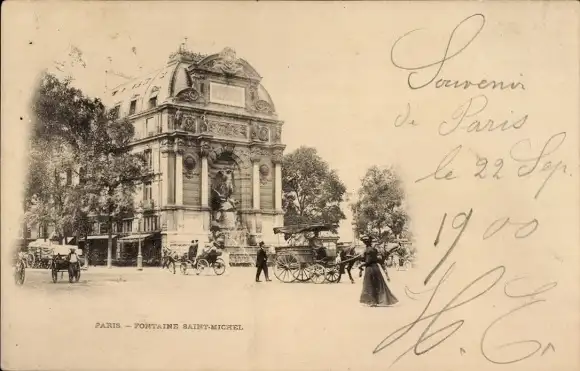 Souvenir
de Paris
le 22 Sep.
1900
H. E.
PARIS. — FONTAINE SAINT-MICHEL